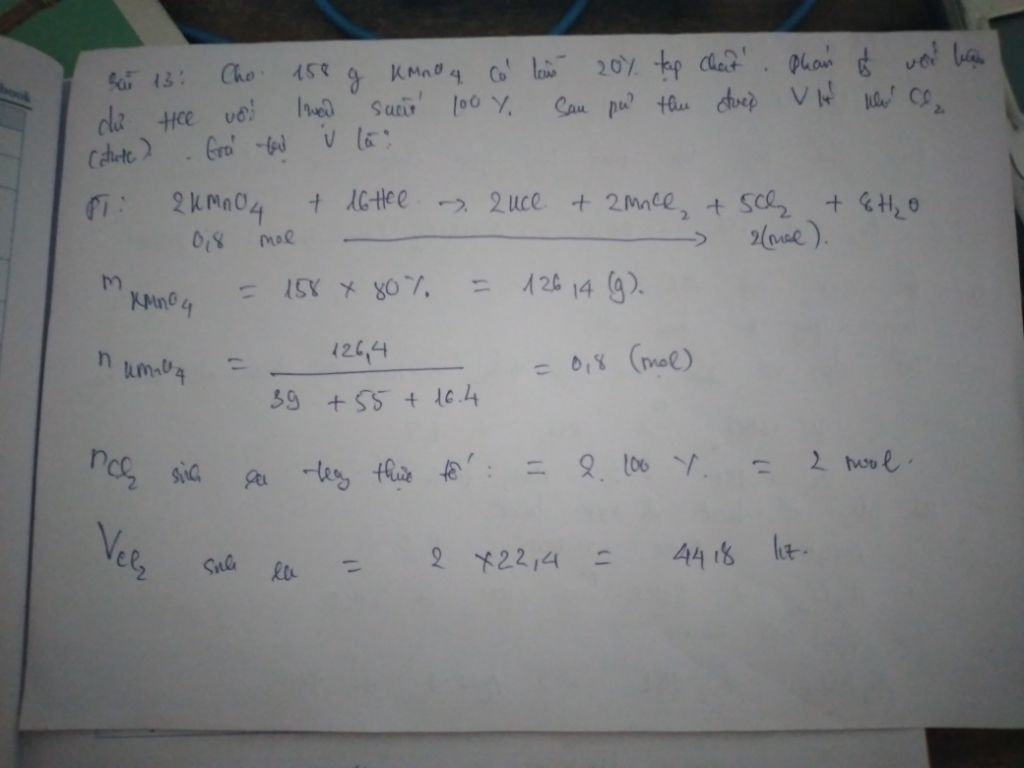 Bài 13: Cho 158 g KMnO4 có lẫn 20% tạp chất. Phản ứ với lượng
dư HCl với hiệu suất 100%. Sau pứ thu được V lít khí Cl2
(đktc). Giá trị V là:
PT: 2KMnO4 + 16HCl -> 2KCl + 2MnCl2 + 5Cl2 + 8H2O
0,8 mol 2(mol).
mKMnO4 = 158 x 80% = 126,4 (g).
nKMnO4 = 126,4 / 39 + 55 + 16.4 = 0,8 (mol)
nCl2 sinh ra thực tế: = 2. 100 % = 2 mol.
VCl2 sinh ra = 2 x22,4 = 44,8 lít.